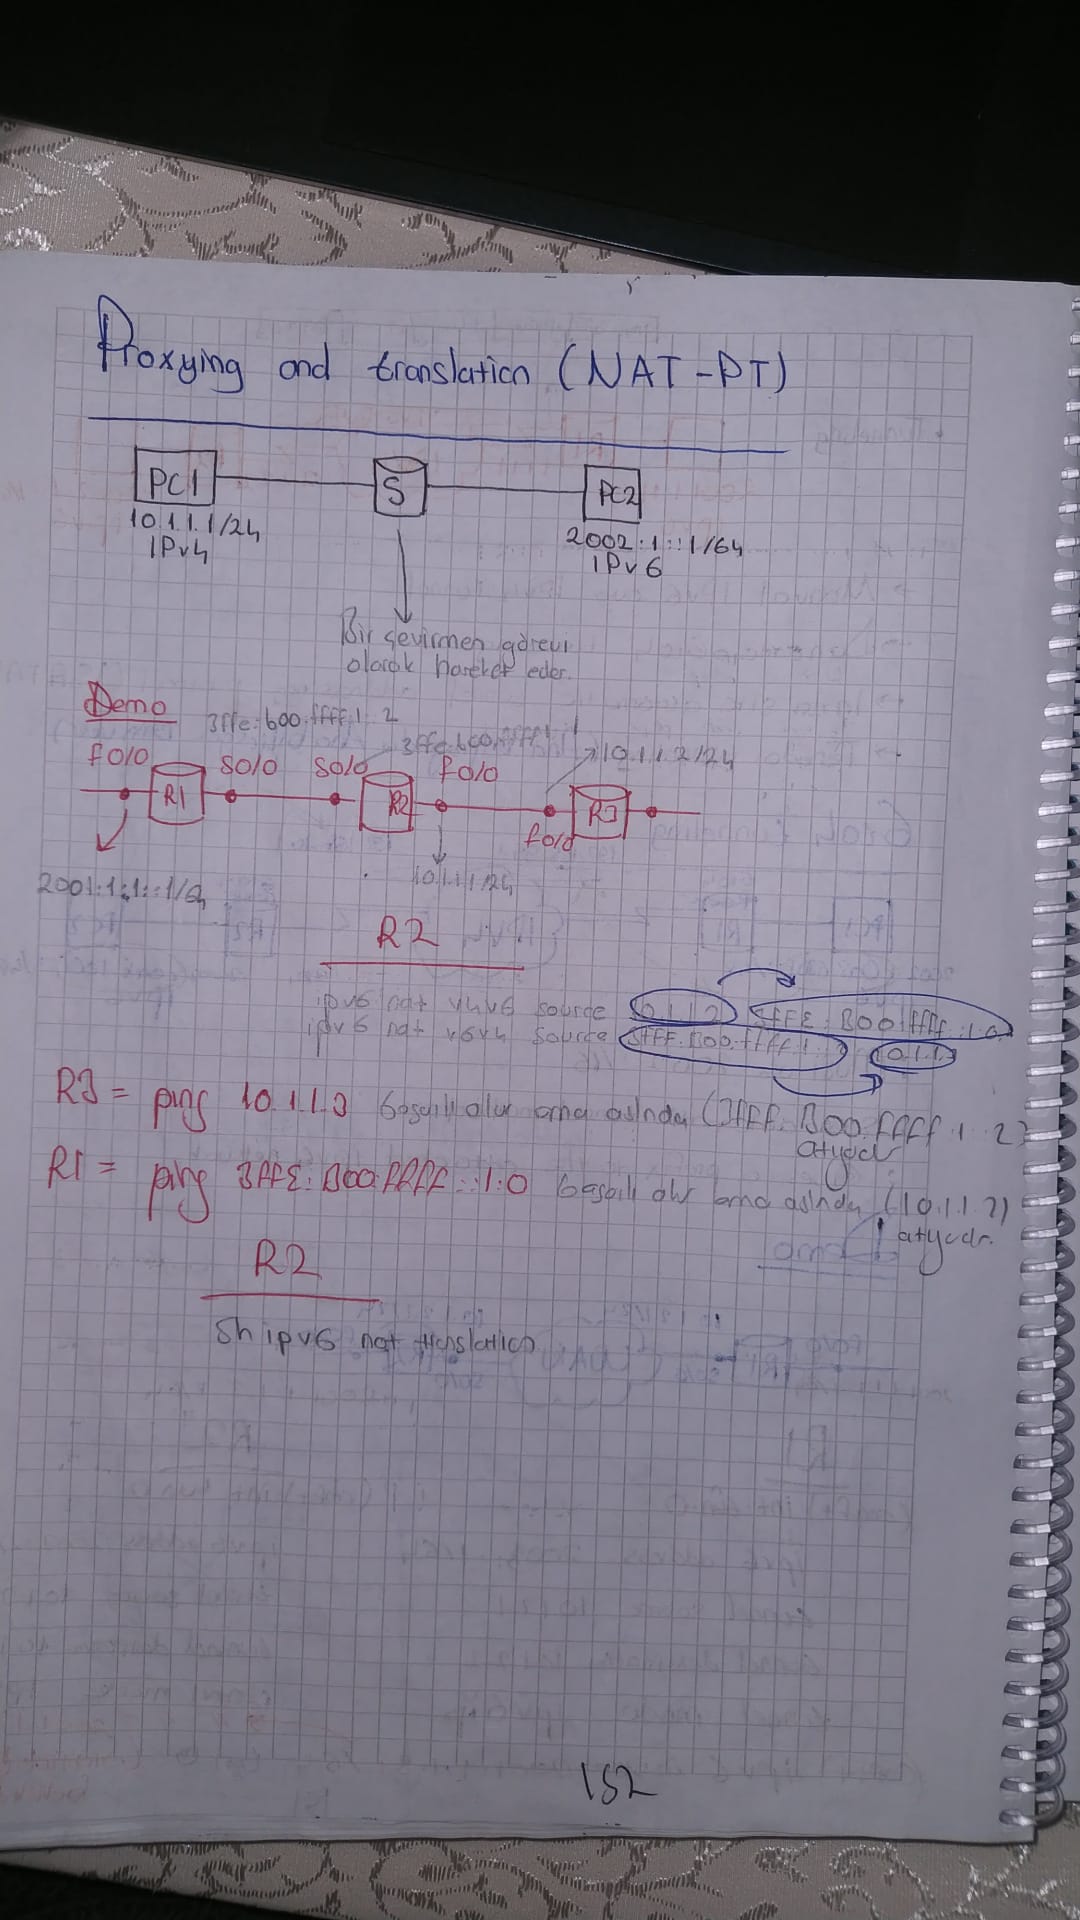 Proxying and translation (NAT-PT)
PC1
S
PC2
10.1.1.1/24
IPv4
2002:1::1/64
IPv6
Bir çevirmen görevi
olarak hareket eder.
Demo
3ffe:b00:ffff:1::2
3ffe:b00:ffff:1::1
10.1.1.2/24
f0/0
R1
S0/0
S0/0
R2
f0/0
f0/0
R3
2001:1:1::1/64
10.1.1.1/24
R2
ipv6 nat v4v6 source 10.1.1.2 3FFE:B00:ffff::1:0
ipv6 nat v6v4 source 3FFF:B00:ffff:1::2 10.1.1.3
R3 = ping 10.1.1.3 başarılı olur ama aslında (3FFF:B00:ffff:1::2)
atıyodr
R1 = ping 3FFE:B00:FFFF::1:0 başarılı olur ama aslında (10.1.1.2)
atıyodr.
R2
Sh ipv6 nat translation
152